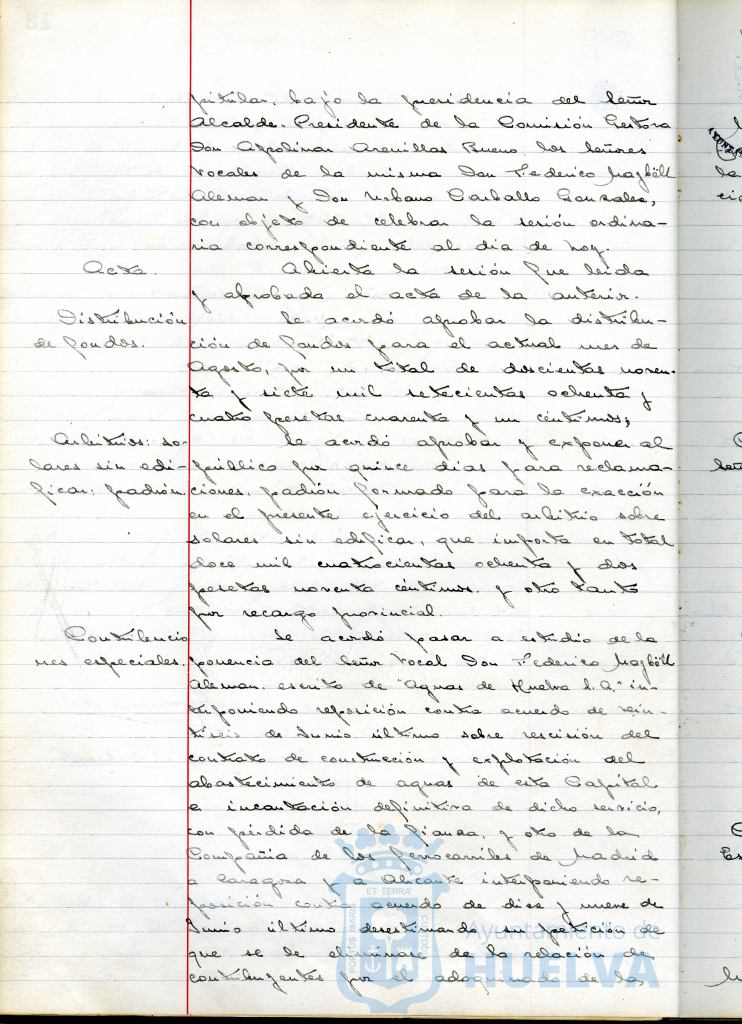 pitular, bajo la presidencia del Señor
Alcalde-Presidente de la Comisión Gestora
Don Apolinar Arenillas Bueno los Señores
Vocales de la misma Don Federico
Aleman y Don Urbano Carballo Gonzalez,
con objeto de celebrar la sesión ordina-
ria correspondiente al dia de hoy.
Acta.
Abierta la sesión fue leida
y aprobada el acta de la anterior.
Distribución
de fondos.
Se acordó aprobar la distribu-
ción de fondos para el actual mes de
Agosto, por un total de doscientas noven-
ta y siete mil setecientas ochenta y
cuatro pesetas cuarenta y un centimos;
Arbitrios: so-
lares sin edi-
ficar: padrón.
Se acordó aprobar y exponer al
público por quince dias para reclama-
ciones, padrón formado para la exacción
en el presente ejercicio del arbitrio sobre
solares sin edificar, que importa en total
doce mil cuatrocientas ochenta y dos
pesetas noventa céntimos. y otro tanto
por recargo provincial.
Contribucio
nes especiales.
Se acordó pasar a estudio de la
ponencia del Señor Vocal Don Federico
Aleman. escrito de "Aguas de Huelva S.A." in-
terponiendo reposición contra acuerdo de vein-
tiseis de Junio último sobre rescisión del
contrato de construcción y explotación del
abastecimiento de aguas de esta Capital
e incautación definitiva de dicho servicio,
con pérdida de la fianza, y otro de la
Compañia de los ferrocarriles de Madrid
a Zaragoza y a Alicante interponiendo re-
posición contra acuerdo de diez y nueve de
Junio último desestimando su petición de
que se le eliminase de la relación de
contribuyentes por el adoquinado de la
PORTUS MARIS
ET TERRÆ
CUSTODIA
Ayuntamiento de
HUELVA